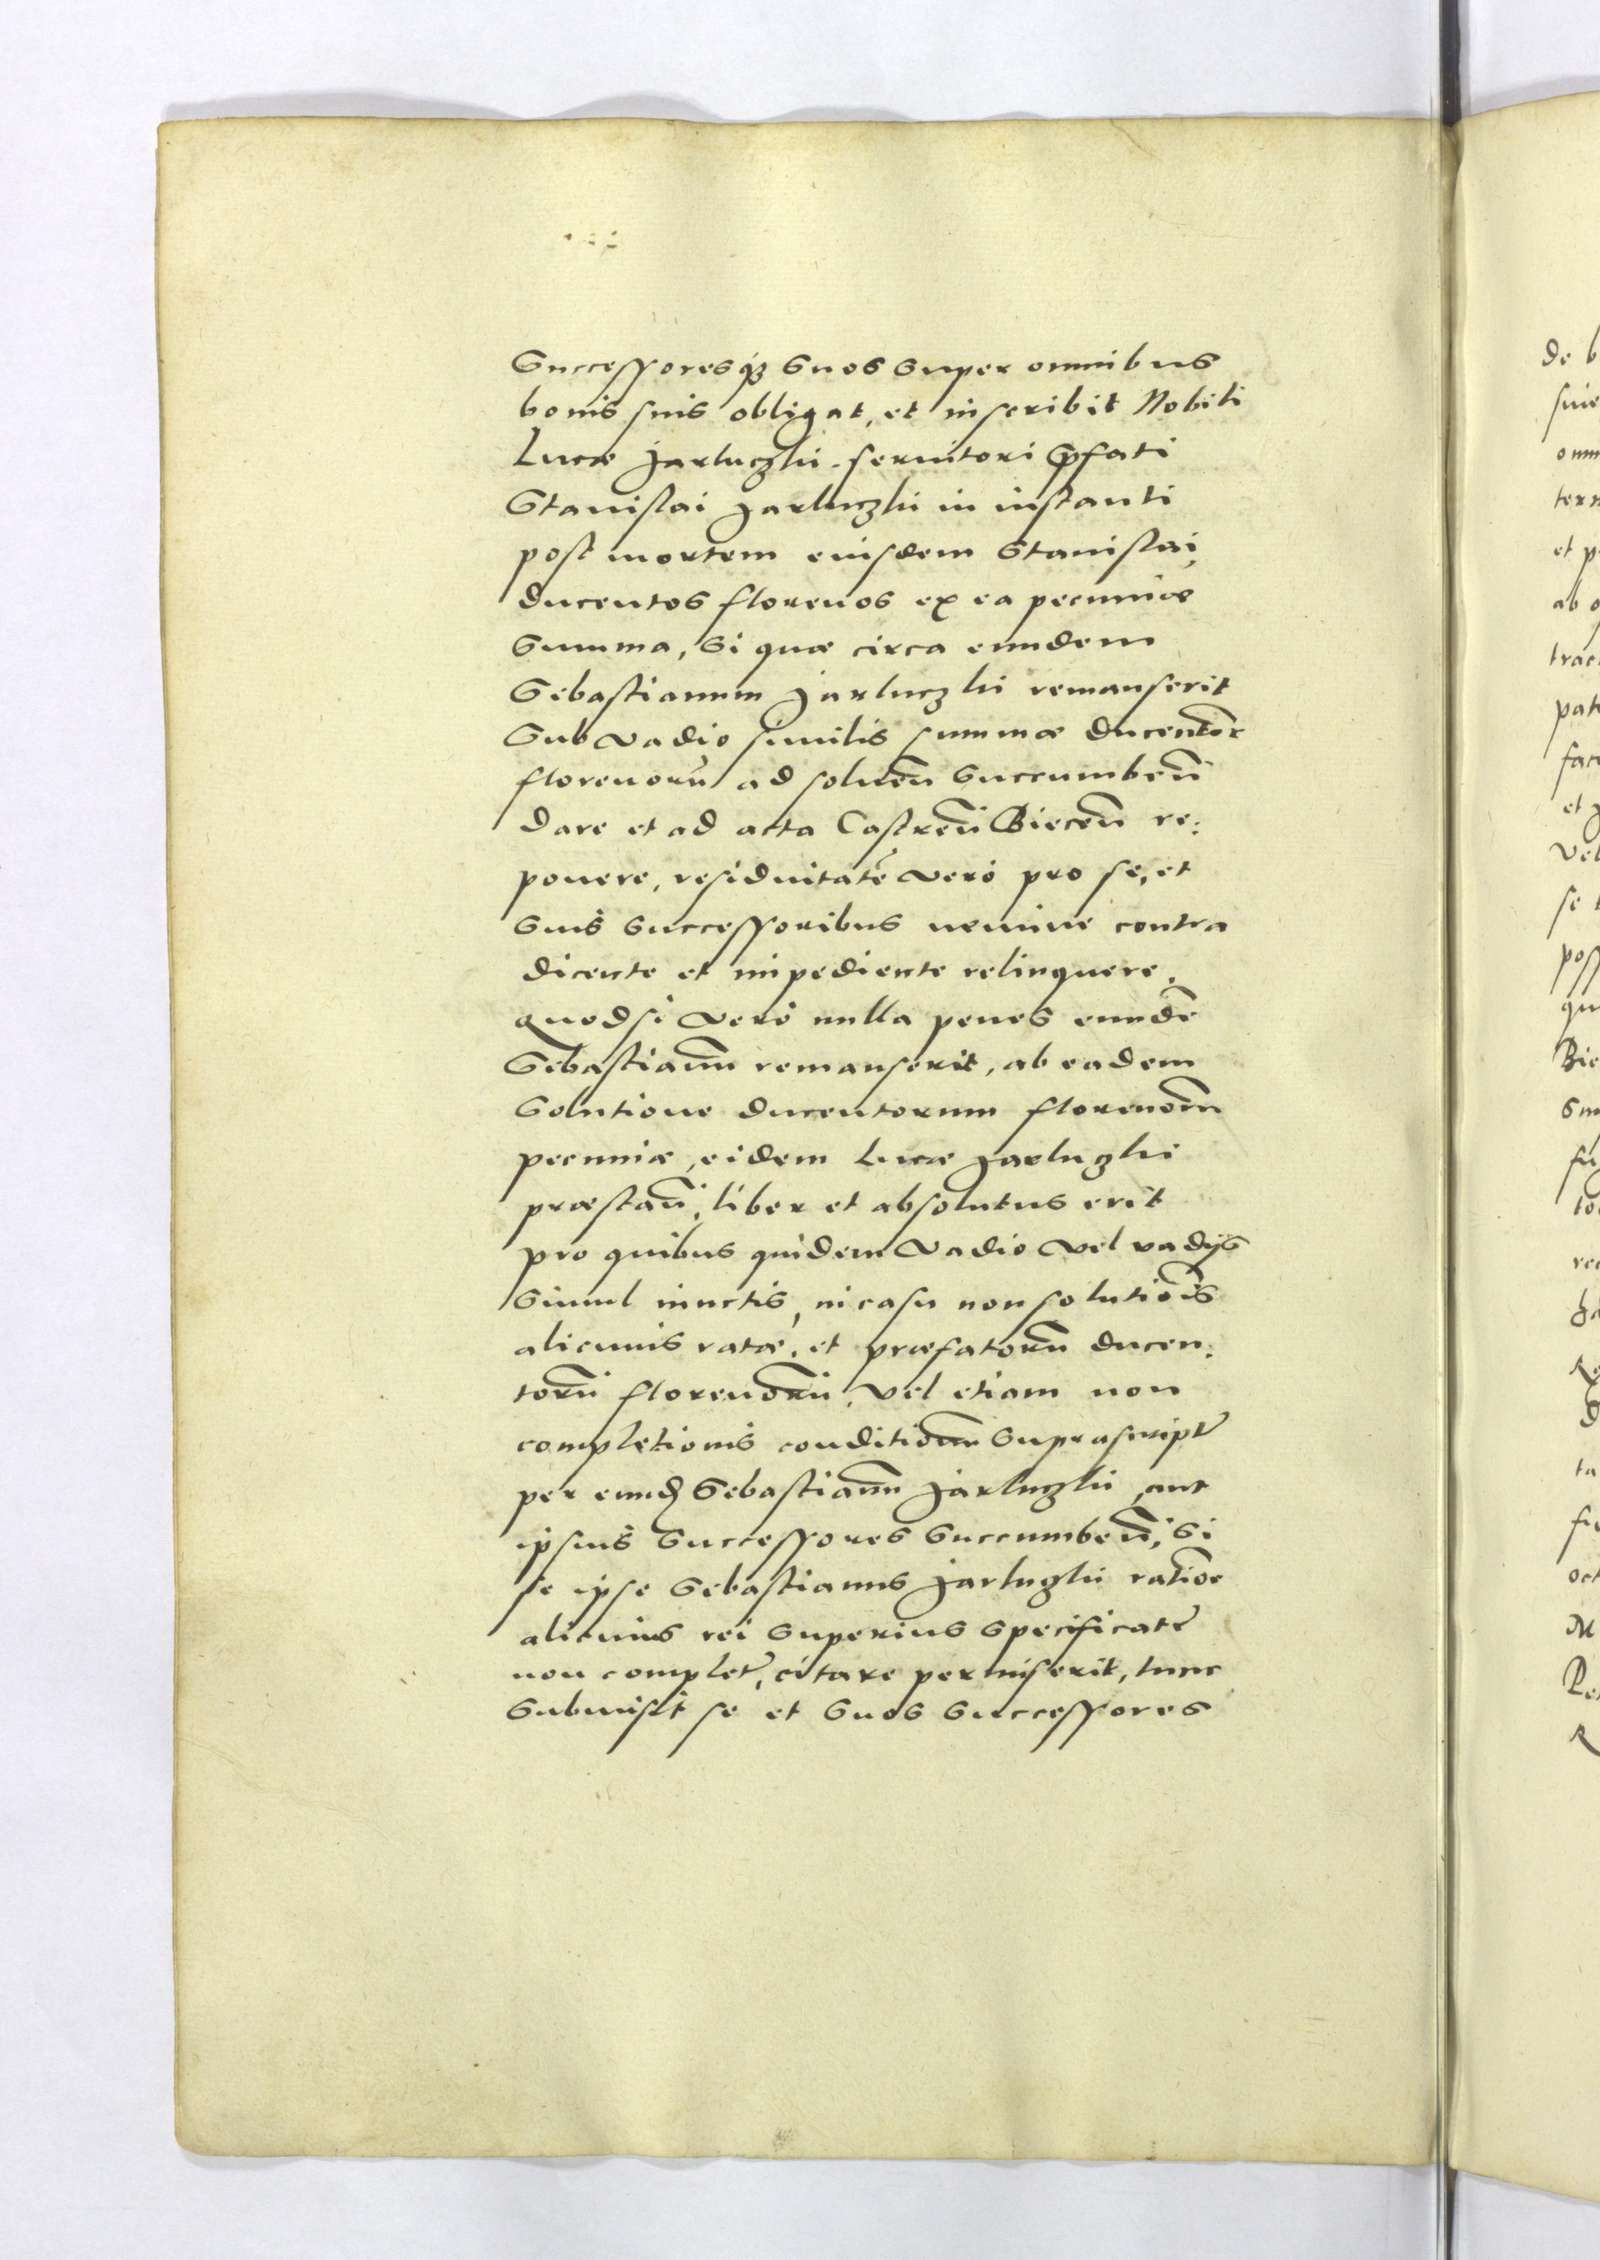 Successoresq₃ suos super omnibus
bonis suis obligat, et inscribit Nobili
Lucæ Jarluczhi seruitori p̄fati
Stanislai Jarluczhi in instanti
post mortem eiusdem Stanislai,
ducentos florenos ex ea pecuniæ
summa, si quæ circa eundem
Sebastianum Jarluczhi remanserit
Sub vadio similis summæ ducentor̄
florenorū ad soluen̄ succumben̄
dare et ad acta Castren̄ Biecen̄ re:
ponere, residuitatē verò pro se, et
suis successoribus nemine contra
dicente et impediente relinquere,
quodsi verò nulla penes eundē
Sebastianū remanserit, ab eadem
Solutione ducentorum florenorū
pecuniæ, eidem Lucæ Jarluczhi
præstan̄, liber et absolutus erit
pro quibus quidem vadio vel vadijs
Simul iunctis, in casu non solutiōis
alicuius ratæ, et præfatorū ducen:
torū florenorū, vel etiam non
completionis conditionū suprascript̄
per eund₎ Sebastianū Jarluczhi, aut
ipsius successores succumben̄, si
se ipse Sebastianus Jarluczhi ratiōe
alicuius rei superius specificat̄
non complet̄, citare permiserit, tunc
submisit se et suos successores
de b
omn
tern
et p
ab o
trac
pat
fac
et
vel
se
poss
qu
Bie
ta
oct